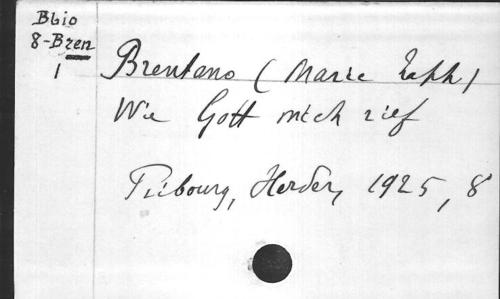 Bbio
8-Bren
1
Brentano (Marie Raph)
Wie Gott mich rief
Fribourg, Herder, 1925, 8°